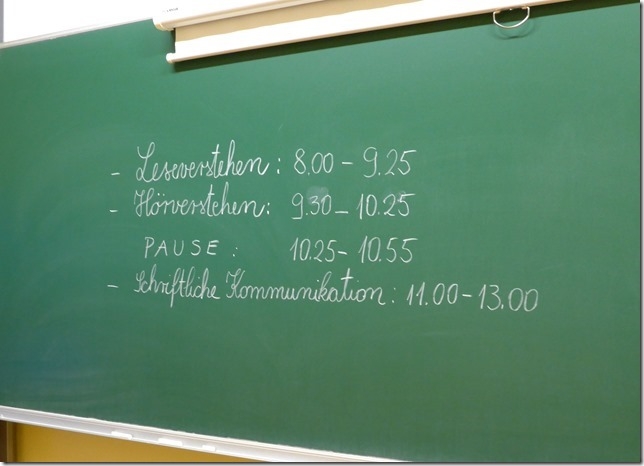 - Leseverstehen: 8.00 - 9.25
- Hörverstehen: 9.30 - 10.25
PAUSE: 10.25 - 10.55
- Schriftliche Kommunikation: 11.00 - 13.00